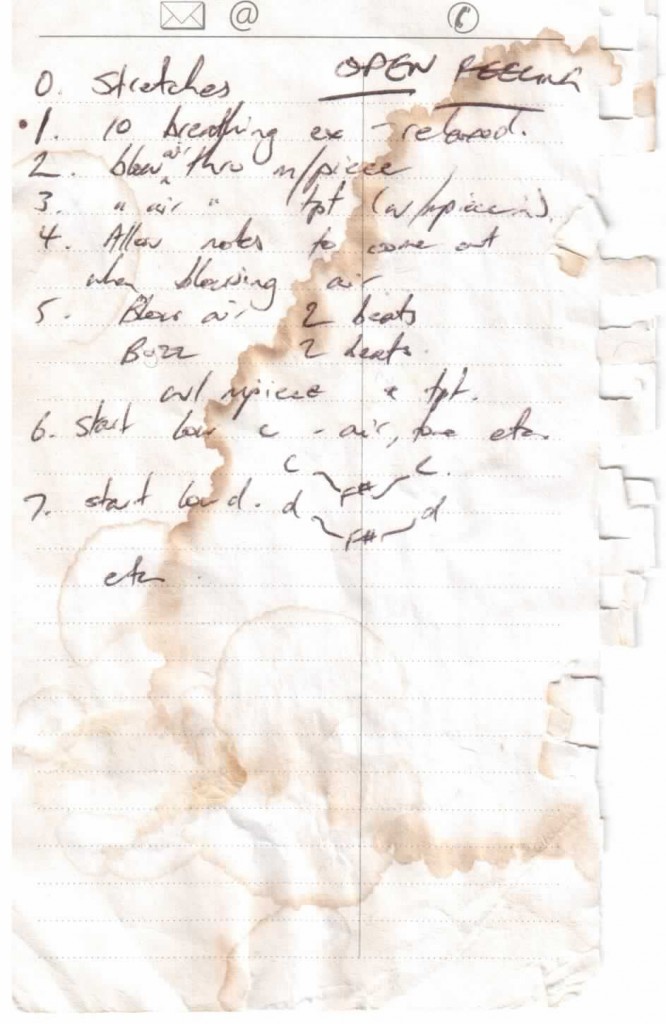 @
OPEN FEELING
0. Stretches
1. 10 breathing ex - relaxed.
2. blow air thru m/piece
3. " air " tpt (w/mpiece in)
4. Allow notes to come out
when blowing air
5. Blow air 2 beats
Buzz 2 beats.
w/ mpiece & tpt.
6. Start low c - air, tone etc.
C F# C.
7. start low d. d F# d
etc